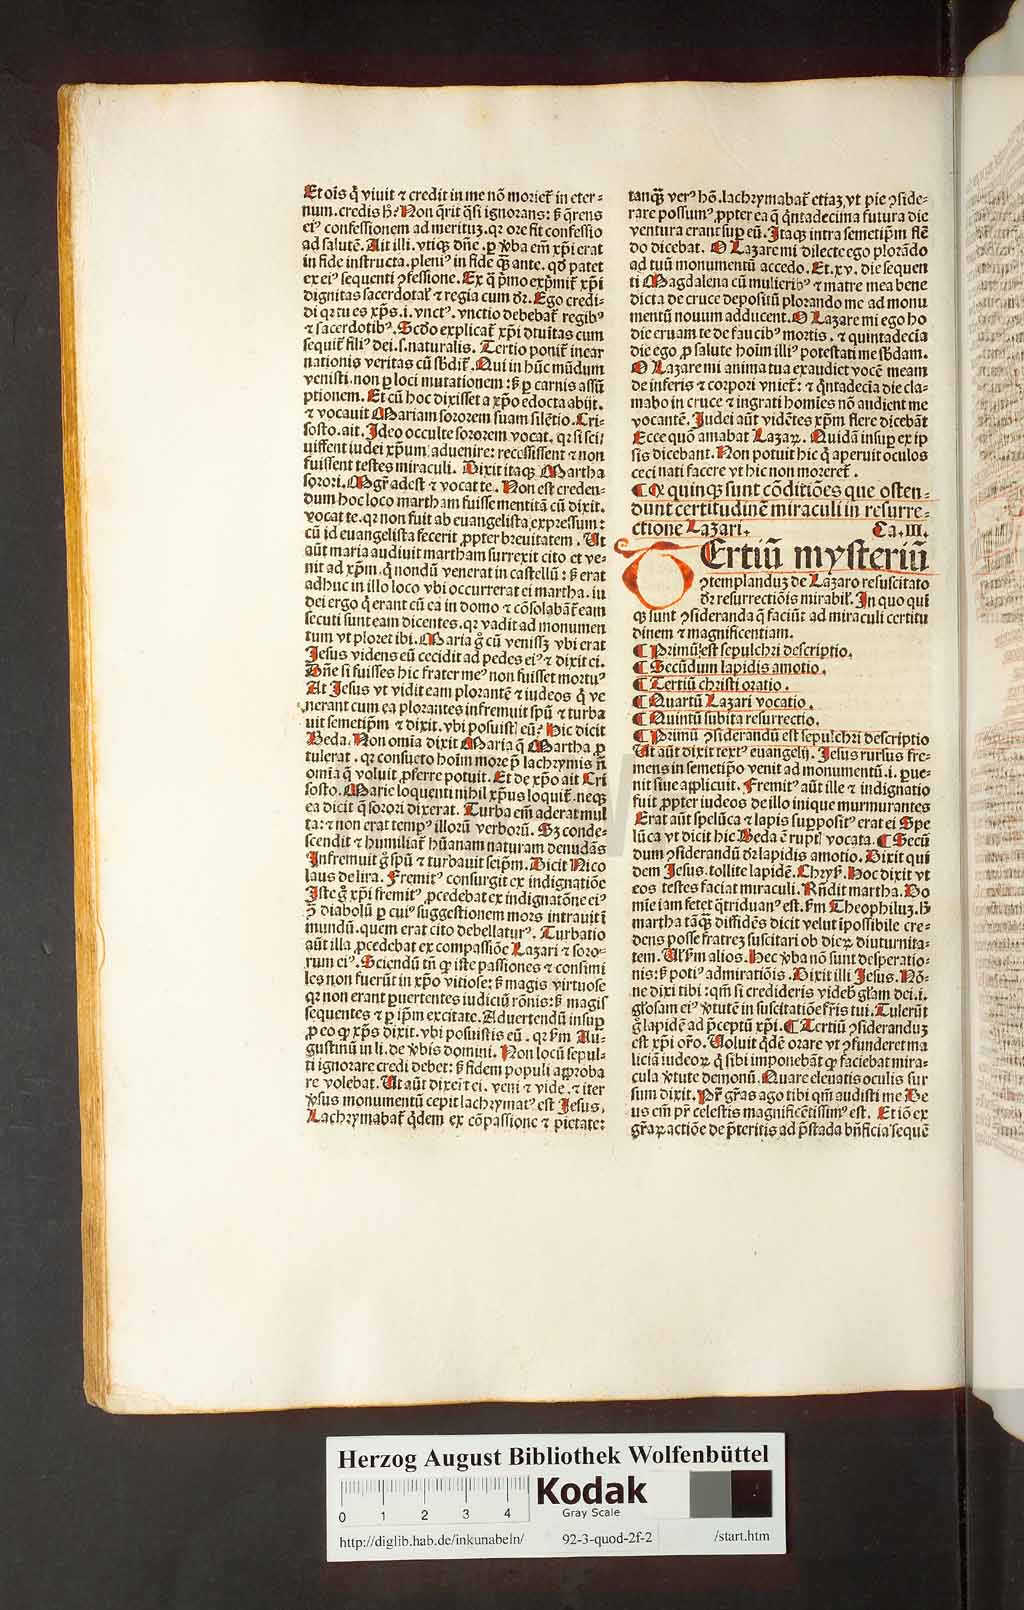 Et oı̄s q̄ viuit ⁊ credit in me nō morieť in eter-
num. credis h̊? Non q̄rit q̄si ignorans: ß q̄rens
ei⁹ confessionem ad merituʒ. qꝛ ore fit confessio
ad salutē. Ait illi. vtiqʒ dn̄e. ꝑ v̓ba em̄ xp̄i erat
in fide instructa. pleni⁹ in fide q̄ʒ ante. qd̓ patet
ex ei⁹ sequenti ꝯfessione. Ex q̄ p̓mo exp̓miť xp̄i
dignitas sacerdotaľ ⁊ regia cum dꝛ. Ego credi-
di qꝛ tu es xp̄s .i. vnct⁹. vnctio debebať regib⁹
⁊ sacerdotib⁹. Scd̓o explicať xp̄i dīuītas cum
sequiť fili⁹ dei .s. naturalis. Tertio poniť incar
nationis veritas cū ßdiť. Qui in hūc mūdum
venisti. non ꝑ loci mutationem: ß ꝑ carnis assū
ptionem. Et cū hoc dixisset a xp̄o edocta abijt.
⁊ vocauit Mariam sororem suam silētio. Cri-
sosto. ait. Ideo occulte sororem vocat. qꝛ si sci
uissent iudei xp̄um aduenire: recessissent ⁊ non
fuissent testes miraculi. Dixit itaqʒ Martha
sorori. Mgr̄ adest ⁊ vocat te. Non est creden-
dum hoc loco martham fuisse mentitā cū dixit.
vocat te. qꝛ non fuit ab euangelista expressum:
cū id euangelista fecerit ꝓpter breuitatem. Ut
aūt maria audiuit martham surrexit cito et ve-
nit ad xp̄m. q̄ nondū venerat in castellū: ß erat
adhuc in illo loco vbi occurrerat ei martha. iu
dei ergo q̄ erant cū ea in domo ⁊ cōsolabāť eam
secuti sunt eam dicentes. qꝛ vadit ad monumen
tum vt ploret ibi. Maria g̊ cū venissʒ vbi erat
Jesus videns eū cecidit ad pedes ei⁹ ⁊ dixit ei.
Dn̄e si fuisses hic frater me⁹ non fuisset mortu⁹
At Jesus vt vidit eam plorantē ⁊ iudeos q̄ ve
nerant cum ea plorantes infremuit spū ⁊ turba
uit semetip̄m ⁊ dixit. vbi posuistis eū? Hic dicit
Beda. Non omīa dixit Maria q̄ Martha ꝓ
tulerat. qꝛ consueto hoīm more p̄ lachrymis n̄
omīa q̄ voluit ꝓferre potuit. Et de xp̄o ait Cri
sosto. Marie loquenti nihil xp̄us loquiť. neqʒ
ea dicit q̄ sorori dixerat. Turba em̄ aderat mul
ta: ⁊ non erat temp⁹ illorū verborū. Sʒ conde-
scendit ⁊ humiliať hūanam naturam denudās
Infremuit g̊ spū ⁊ turbauit seip̄m. Dicit Nico
laus de lira. Fremit⁹ consurgit ex indignatiōe
Iste g̊ xp̄i fremit⁹ ꝓcedebat ex indignatōne ei⁹
p̄ diabolū ꝑ cui⁹ suggestionem mors intrauit ī
mundū. quem erat cito debellatur⁹. Turbatio
aūt illa ꝓcedebat ex compassiōe Lazari ⁊ soro-
rum ei⁹. Sciendū tn̄ ꝙ iste passiones ⁊ consimi
les non fuerūt in xp̄o vitiose: ß magis virtuose
qꝛ non erant ꝑuertentes iudiciū rōnis: ß magis
sequentes ⁊ ꝑ ip̄m excitate. Aduertendū insuꝑ
ꝓ eo ꝙ xp̄s dixit. vbi posuistis eū. qꝛ ẜm Au-
gustinū in li. de v̓bis domini. Non locū sepul-
ti ignorare credi debet: ß fidem populi approba
re volebat. Ut aūt dixeit ei. veni ⁊ vide. ⁊ iter
v̓sus monumentū cepit lachrymat⁹ est Jesus.
Lachrymabať q̄dem ex cōpassione ⁊ pietate:
tanq̄ʒ ver⁹ hō. lachrymabať etiaʒ vt pie ꝯside-
rare possum⁹ ꝓpter ea q̄ q̄ntadecima futura die
ventura erant suꝑ eū. Itaqʒ intra semetip̄m flē
do dicebat. O Lazare mi dilecte ego plorādo
ad tuū monumentū accedo. Et .xv. die sequen
ti Magdalena cū mulierib⁹ ⁊ matre mea bene
dicta de cruce depositū plorando me ad monu
mentū nouum adducent. O Lazare mi ego ho
die eruam te de faucib⁹ mortis. ⁊ quintadecia
die ego ꝓ salute hoīm illi⁹ potestati me ßdam.
O Lazare mi anima tua exaudiet vocē meam
de inferis ⁊ corpori vnieť: ⁊ q̄ntadecīa die cla-
mabo in cruce ⁊ ingrati homīes nō audient me
vocantē. Judei aūt vidētes xp̄m flere dicebāt
Ecce quō amabat Lazaꝝ. Quidā insuꝑ ex ip
sis dicebant. Non potuit hic q̄ aperuit oculos
ceci nati facere vt hic non moreref̄.
¶ Qꝫ quinqʒ sunt cōditiōes que osten-
dunt certitudinē miraculi in resurre-
ctione Lazari. Ca. III.
TErtiū mysteriū
ꝯtemplanduʒ de Lazaro resuscitato
dꝛ resurrectiōis mirabiľ. In quo qui
qʒ sunt ꝯsideranda q̄ faciūt ad miraculi certitu
dinem ⁊ magnificentiam.
¶ Primū est sepulchri descriptio.
¶ Secūdum lapidis amotio.
¶ Tertiū christi oratio.
¶ Quartū Lazari vocatio.
¶ Quintū subita resurrectio.
¶ Primū ꝯsiderandū est sepulchri descriptio
Ut aūt dixit text⁹ euangelij. Jesus rursus fre-
mens in semetip̄o venit ad monumentū .i. ꝑue-
nit siue applicuit. Fremit⁹ aūt ille ⁊ indignatio
fuit ꝓpter iudeos de illo inique murmurantes
Erat aūt spelūca ⁊ lapis supposit⁹ erat ei Spe
lūca vt dicit hic Beda ē rupes vocata. ¶ Secū
dum ꝯsiderandū dꝛ lapidis amotio. Dixit qui
dem Jesus. tollite lapidē. Chrys̄. Hoc dixit vt
eos testes faciat miraculi. Rn̄dit martha. Do
mīe iam fetet q̄triduan⁹ est. ẜm Theophiluʒ. H̊
martha tāqʒ diffidēs dicit velut īpossibile cre-
dens posse fratreʒ suscitari ob dieꝝ diuturnita-
tem. Ul̓ ẜm alios. Hec v̓ba nō sunt desperatio-
nis: ß poti⁹ admiratiōis. Dixit illi Jesus. Nō-
ne dixi tibi: qm̄ si credideris videb̓ gl̄am dei .i.
gl̄osam ei⁹ v̓tutē in suscitatiōe fr̄is tui. Tulerūt
g̊ lapidē ad p̄ceptū xp̄i. ¶ Tertiū ꝯsideranduʒ
est xp̄i or̄o. Uoluit q̄dē orare vt ꝯfunderet ma
liciā iudeoꝝ q̄ sibi imponebāt ꝙ faciebat mira-
cula v̓tute demonū. Quare eleuatis oculis sur
sum dixit. Pr̄ gr̄as ago tibi qm̄ audisti me De
us em̄ pr̄ celestis magnificētissim⁹ est. Et iō ex
gr̄aꝝ actiōe de p̄teritis ad p̄stāda bn̄ficia sequē
Herzog August Bibliothek Wolfenbüttel
0 1 2 3 4
Kodak
Gray Scale
http://diglib.hab.de/inkunabeln/ 92-3-quod-2f-2 /start.htm